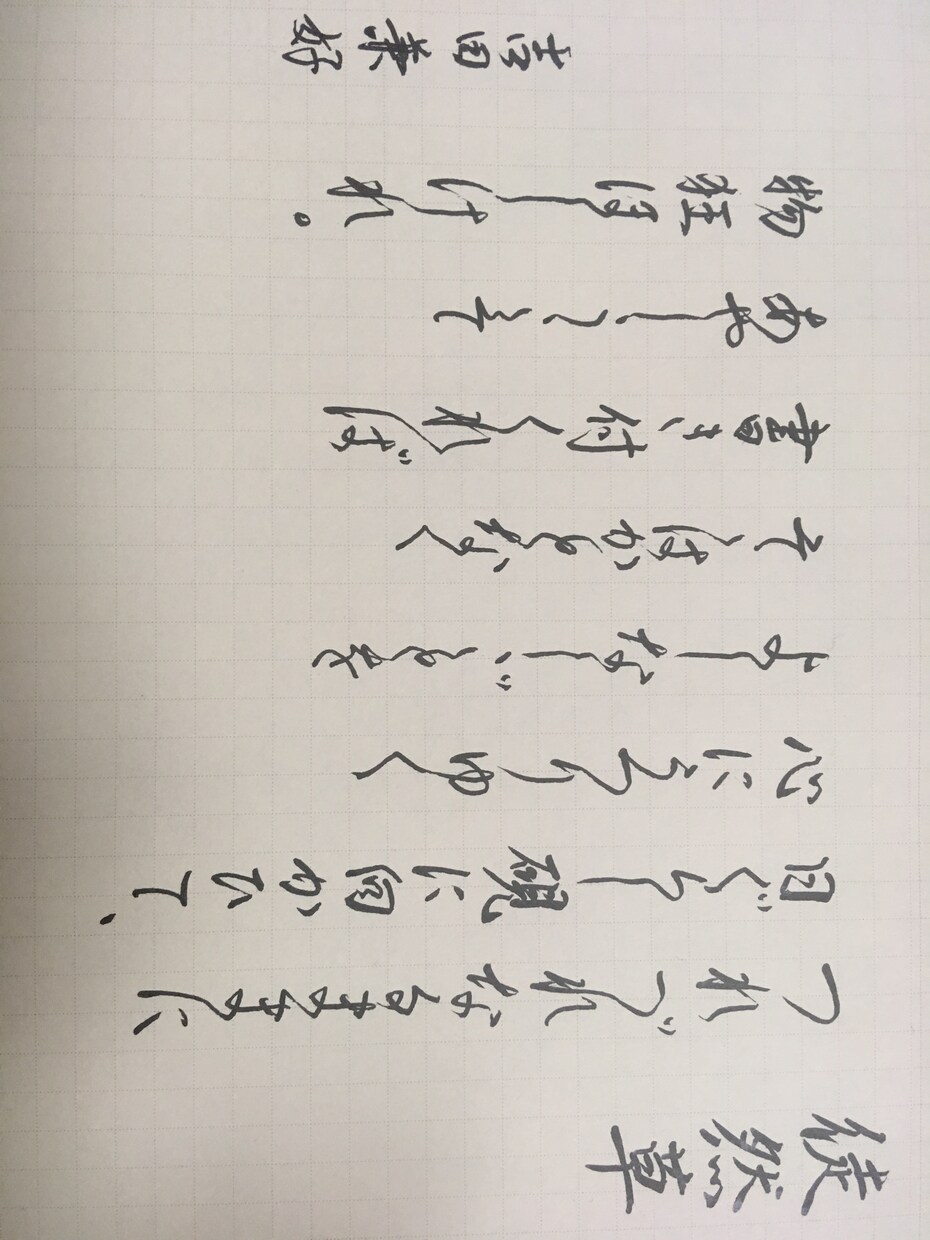 徒然草
つれづれなるままに
日ぐらし硯に向かひて、
心にうつりゆく
よしなしごとを
そこはかとなく
書き付くれば
あやしうこそ
物狂ほしけれ。
吉田兼好